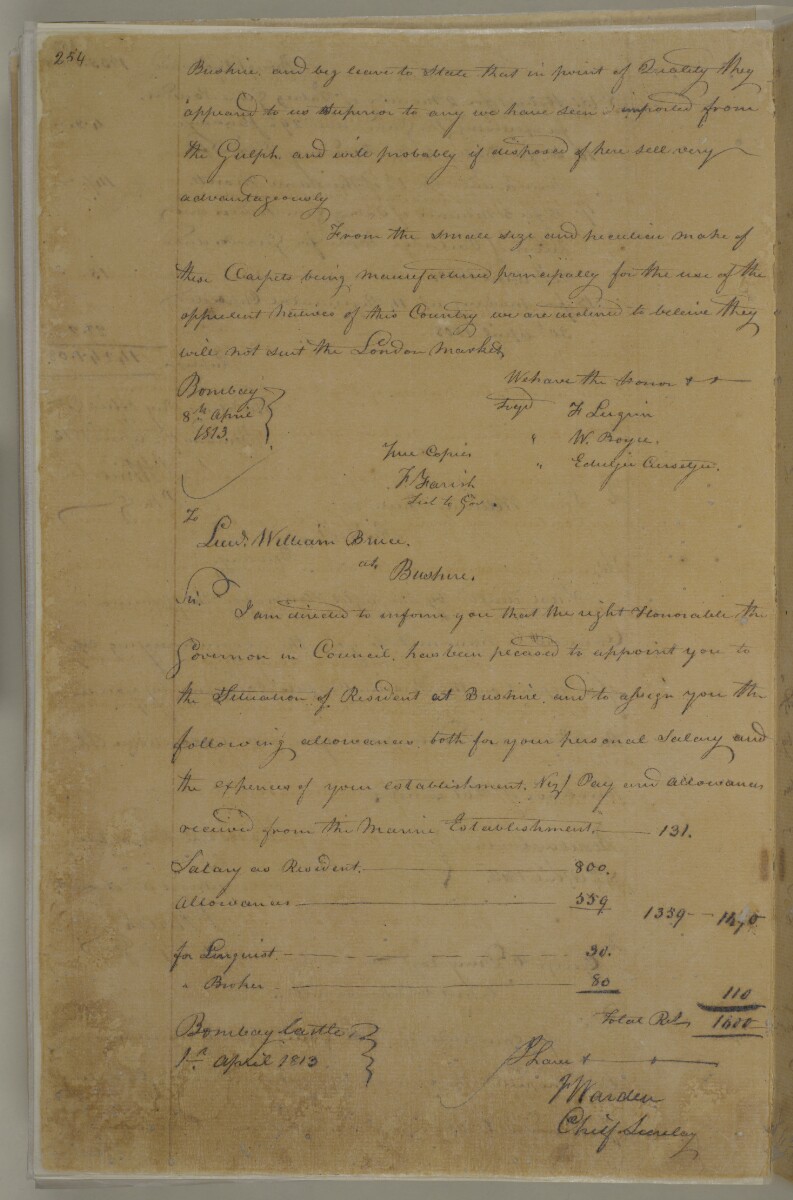 254
Bushire, and beg leave to state that in point of Quality they
appeared to us superior to any we have seen imported from
the Gulph and will probably if disposed of here sell very
advantageously
From the small size and peculiar make of
these Carpets being manufactured principally for the use of the
oppulent Natives of this Country we are inclined to believe they
will not suit the London Market,
We have the honor & &
Bombay
8th April
1813.
Sigd F Leqriu
" W. Boyce.
" Eduljee Cursetjee.
True Copies
F Farish
Sect to Gov.
To
Lieut. William Bruce.
at Bushire.
Sir.
I am directed to inform you that the right Honorable the
Governor in Council, has been pleased to appoint you to
the Situation of Resident at Bushire, and to assign you the
following allowances, both for your personal Salary and
the expences of your establishment. Vizt Pay and allowances
received from the Marine Establishment — 131.
Salary as Resident. — 800.
Allowances — 559 1359 — 1490
for Linguist — 30.
" Broker — 80 110
Total Rs 1600
Bombay Castle
1st April 1813
I have & &
F Warden
Chief Secretary